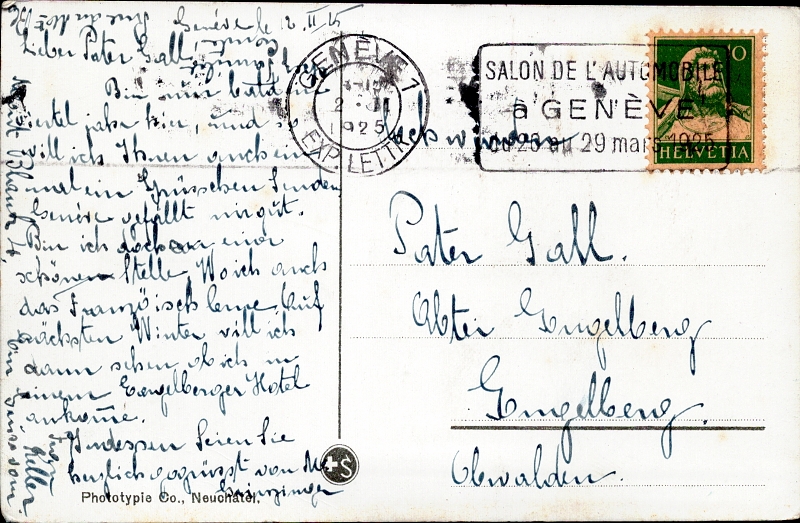 Genève le 2. II. 25
Lieber Pater Gall
Bin nun bald
viertel jahr hier, und so
will ich Ihnen auch ein
mal ein Grüsschen senden
Genève gefällt mir gut.
Bin ich doch an einer
schönen Stelle Wo ich auch
das Französisch lerne. Auf
nächsten Winter will ich
dann sehen ob ich in
einem Engelberger Hotel
ankome.
Indessen Seien Sie
herzlich gegrüsst von
Phototypie Co., Neuchâtel.
GENÈVE 1
2 . II
1925
EXP. LETTR
SALON DE L'AUTOMOBILE
à GENÈVE
du 20 au 29 mars 1925
10
HELVETIA
Pater Gall.
Abter Engelberg
Engelberg.
Obwalden.
Keller